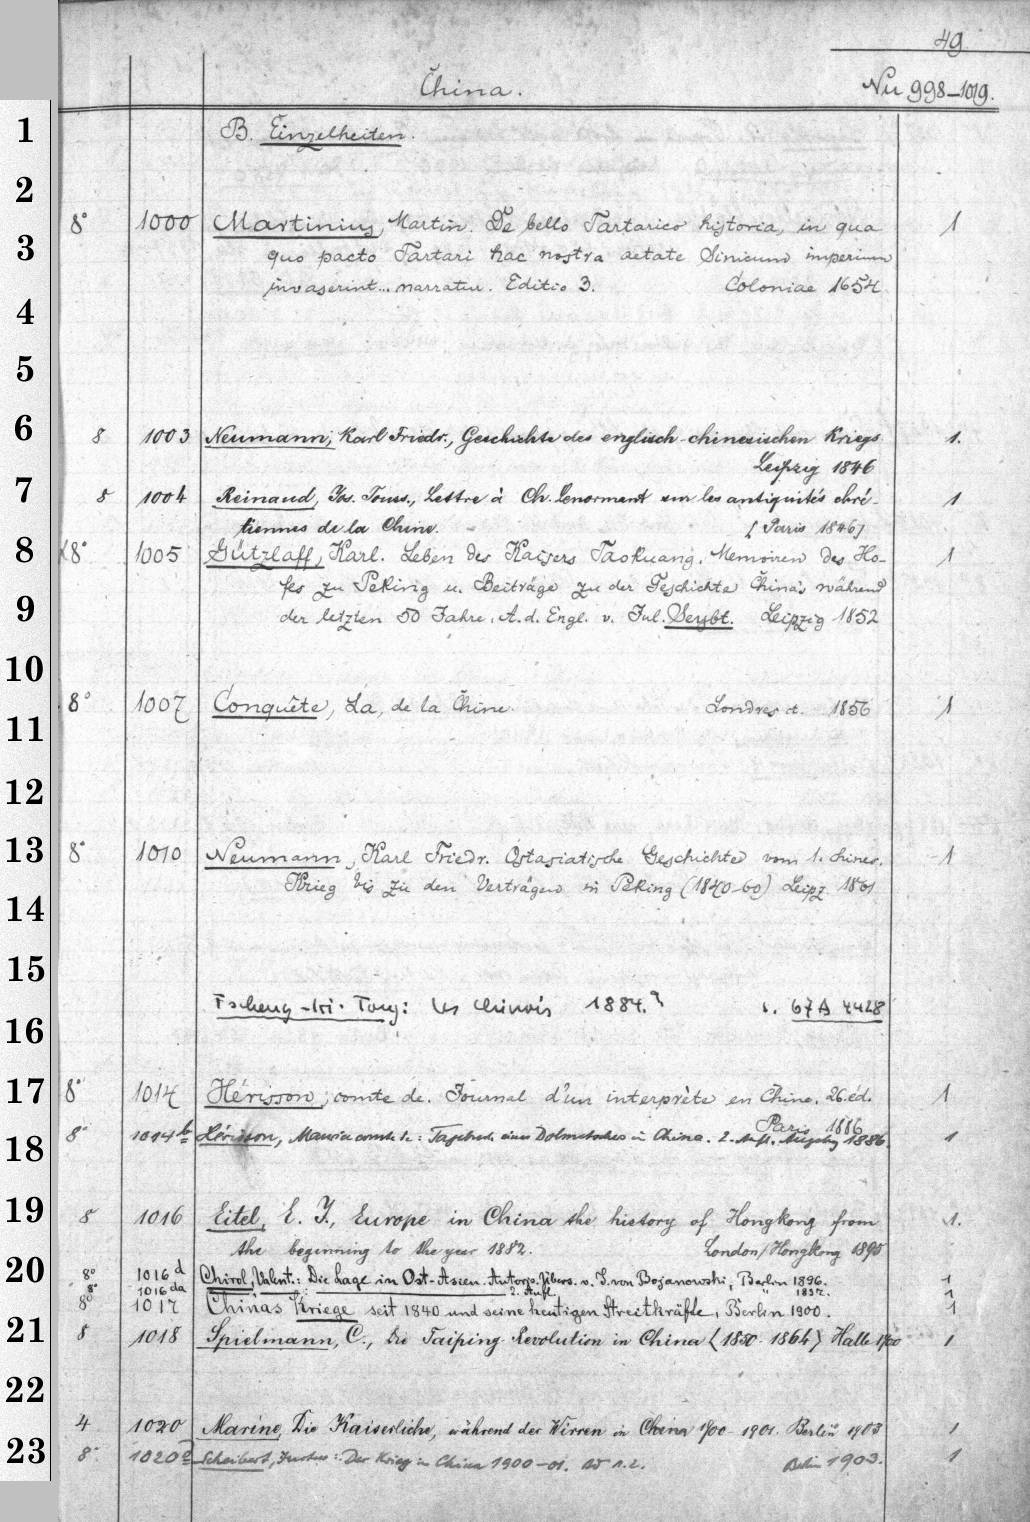 49
China.
Nu 998-1019.
1
B. Einzelheiten.
2
8° 1000 Martinius, Martin. De bello Tartarico historia, in qua 1
3
quo pacto Tartari hac nostra aetate Sinicum imperium
invaserint... narratur. Editio 3. Coloniae 1654
4
5
6
8 1003 Neumann, Karl Friedr., Geschichte des englisch-chinesischen Kriegs 1.
Leipzig 1846
7
8 1004 Reinaud, Jos. Touss., Lettre à Ch. Lenormant sur les antiquités chré- 1
tiennes de la Chine. [Paris 1846]
8
8° 1005 Gützlaff, Karl. Leben des Kaisers Taokuang. Memoiren des Ho- 1
fes zu Peking u. Beiträge zu der Geschichte China's während
9
der letzten 50 Jahre. A. d. Engl. v. Jul. Seybt. Leipzig 1852
10
8° 1007 Conquête, La, de la Chine. Londres et. 1856 1
11
12
13
8° 1010 Neumann, Karl Friedr. Ostasiatische Geschichte vom 1. chines. 1
Krieg bis zu den Verträgen in Peking (1840-60) Leipz. 1861
14
15
Tscheng-Ki-Tong: Les Chinois 1884. s. 67A 4428
16
17
8° 1014 Hérisson, comte de. Journal d'un interprète en Chine. 26. éd. 1
Paris 1886
8° 1014 b Hérisson, Maurice comte de: Tagebuch eines Dolmetschers in China. 2. Aufl. Augsburg 1886. 1
18
19
8 1016 Eitel, E. J., Europe in China the history of Hongkong from 1.
the beginning to the year 1882. London/Hongkong 1895
20
8° 1016 d Chirol, Valent.: Die Lage in Ost-Asien. Autoris. Übers. v. J. von Bojanowski, Berlin 1896. 1
8° 1016 da 2. Aufl. " 1897. 1
8° 1017 Chinas Kriege seit 1840 und seine heutigen Streitkräfte, Berlin 1900. 1
21
8 1018 Spielmann, C., Die Taiping-Revolution in China (1850-1864) Halle 1900 1
22
4 1020 Marine, Die Kaiserliche, während der Wirren in China 1900-1901. Berlin 1903 1
23
8° 1020a Scheibert, Justus: Der Krieg in China 1900-01. Bd 1.2. Berlin 1903. 1